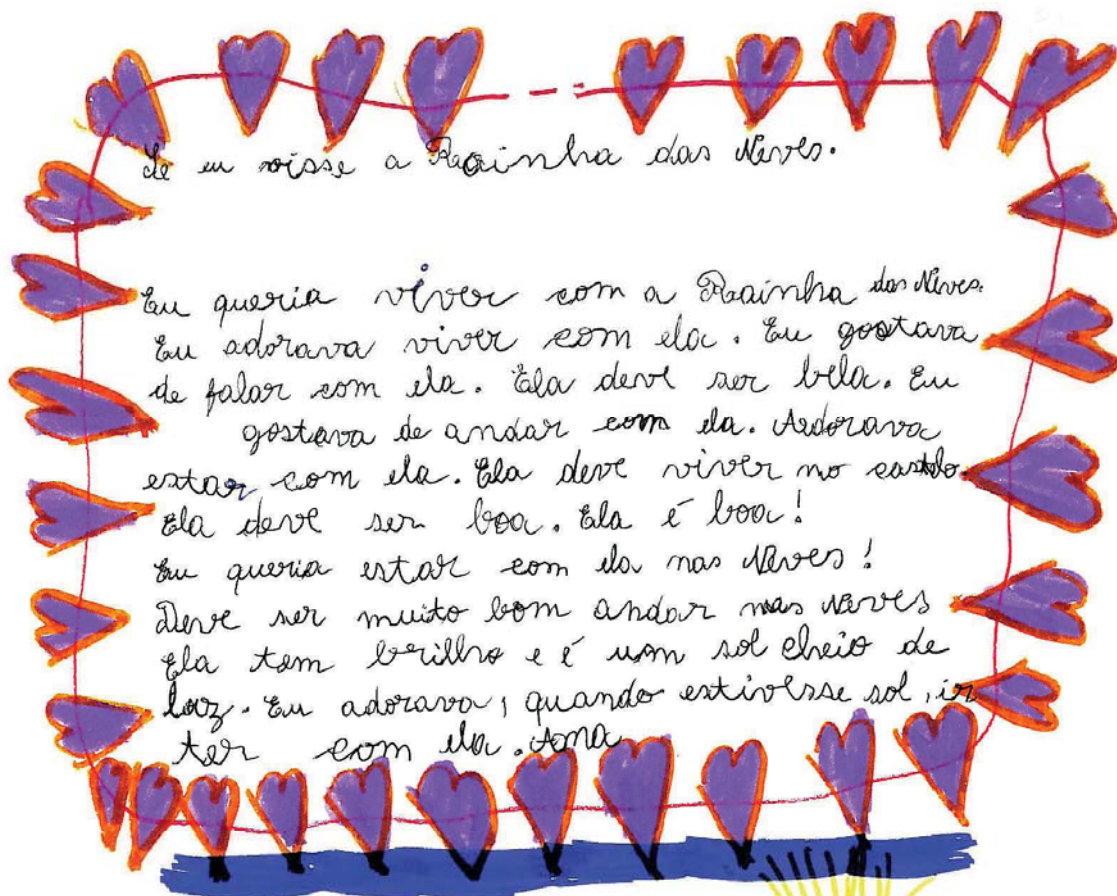 Se eu visse a Rainha das Neves.
Eu queria viver com a Rainha das Neves.
Eu adorava viver com ela. Eu gostava
de falar com ela. Ela deve ser bela. Eu
gostava de andar com ela. Adorava
estar com ela. Ela deve viver no castelo.
Ela deve ser boa. Ela é boa!
Eu queria estar com ela nas Neves!
Deve ser muito bom andar nas Neves
Ela tem brilho e é um sol cheio de
luz. Eu adorava, quando estivesse sol, ir
ter com ela. Ana